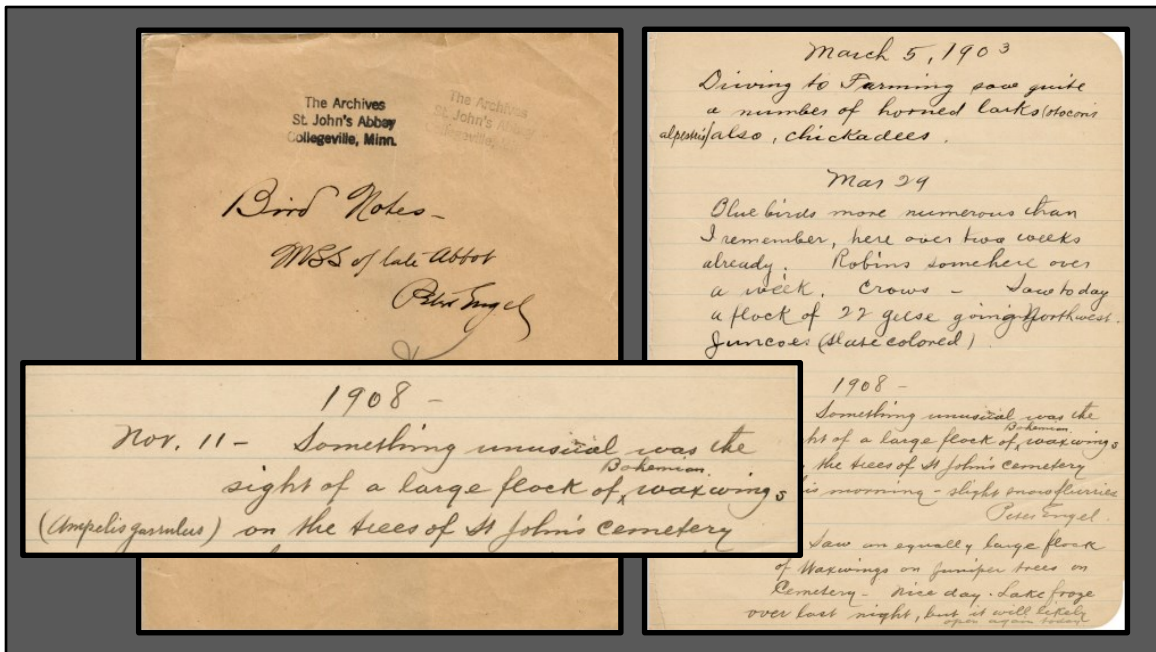 The Archives
St. John's Abbey
Collegeville, Minn.
The Archives
St. John's Abbey
Bird Notes -
MSS of late Abbot
Peter Engel
1908 -
Nov. 11 - Something unusual was the
Bohemian
sight of a large flock of ‸ waxwings
(Ampelis garrulus) on the trees of St John's cemetery
March 5, 1903
Driving to Farming saw quite
a number of horned larks (otocoris
alpestris) also, chickadees.
Mar 29
Blue birds more numerous than
I remember, here over two weeks
already. Robins somehere over
a week. Crows - Saw today
a flock of 22 geese going Northwest.
Juncoes (slate colored)
1908 -
Something unusual was the
Bohemian
ht of a large flock of ‸ waxwings
the trees of St John's cemetery
is morning - slight snow flurries
Peter Engel.
Saw an equally large flock
of Waxwings on juniper trees on
Cemetery - nice day. Lake froze
over last night, but it will likely
open again today